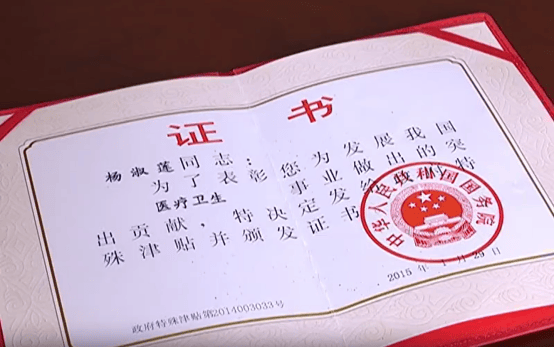 证书
杨淑莲同志:
为了表彰您为发展我国
医疗卫生事业做出的突
出贡献,特决定发给政府特
殊津贴并颁发证书
中华人民共和国国务院
2015年1月29日
政府特殊津贴第2014003033号